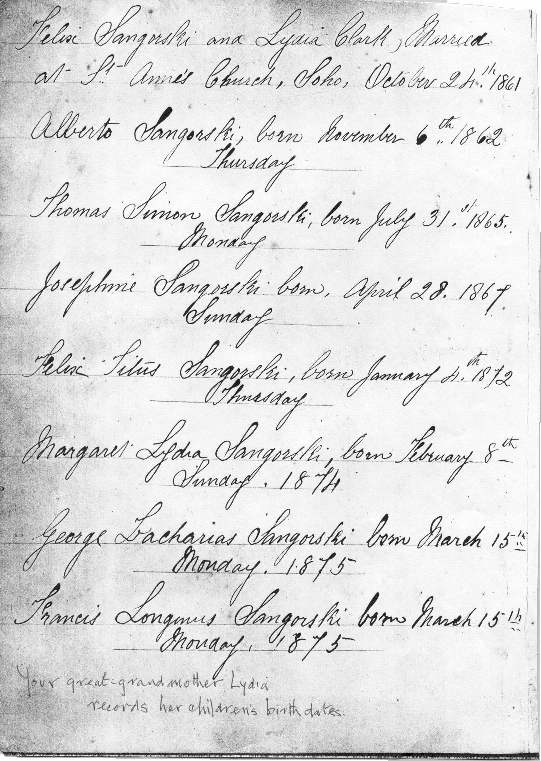 Felix Sangorski and Lydia Clark, Married
at St. Anne's Church, Soho, October 24.th 1861
Alberto Sangorski, born November 6th. 1862
Thursday
Thomas Simon Sangorski, born July 31.st 1865.
Monday
Josephine Sangorski born, April 28. 1867.
Sunday
Felix Titus Sangorski, born January 4.th 1872
Thursday
Margaret Lydia Sangorski, born February 8th
Sunday. 1874
George Zacharias Sangorski born March 15th
Monday. 1875
Francis Longinus Sangorski born March 15th
Monday, 1875
Your great-grandmother Lydia
records her children's birth dates.